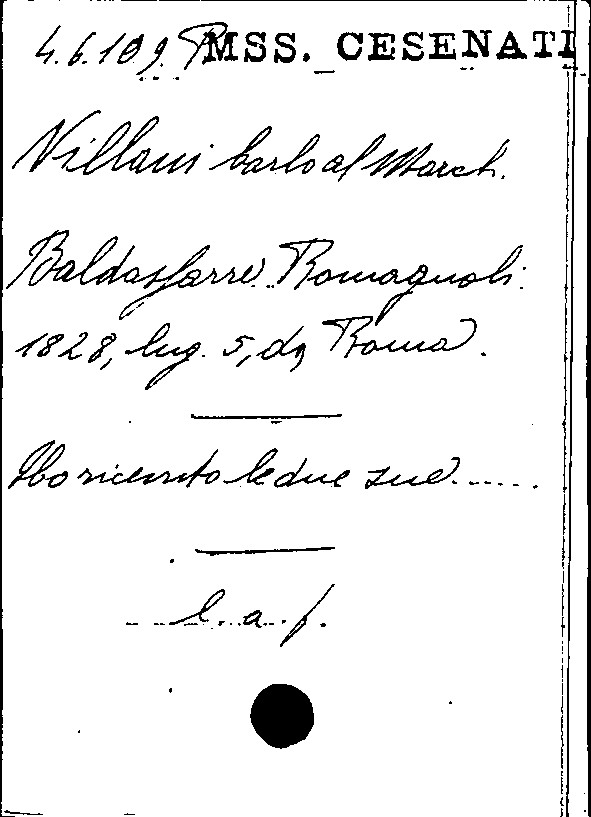 4.6.109 R MSS. CESENATI
Villani Carlo al March.
Baldassarre Romagnoli.
1828, lug. 5, da Roma.
Ho ricevuto le due sue.....
l. a. f.